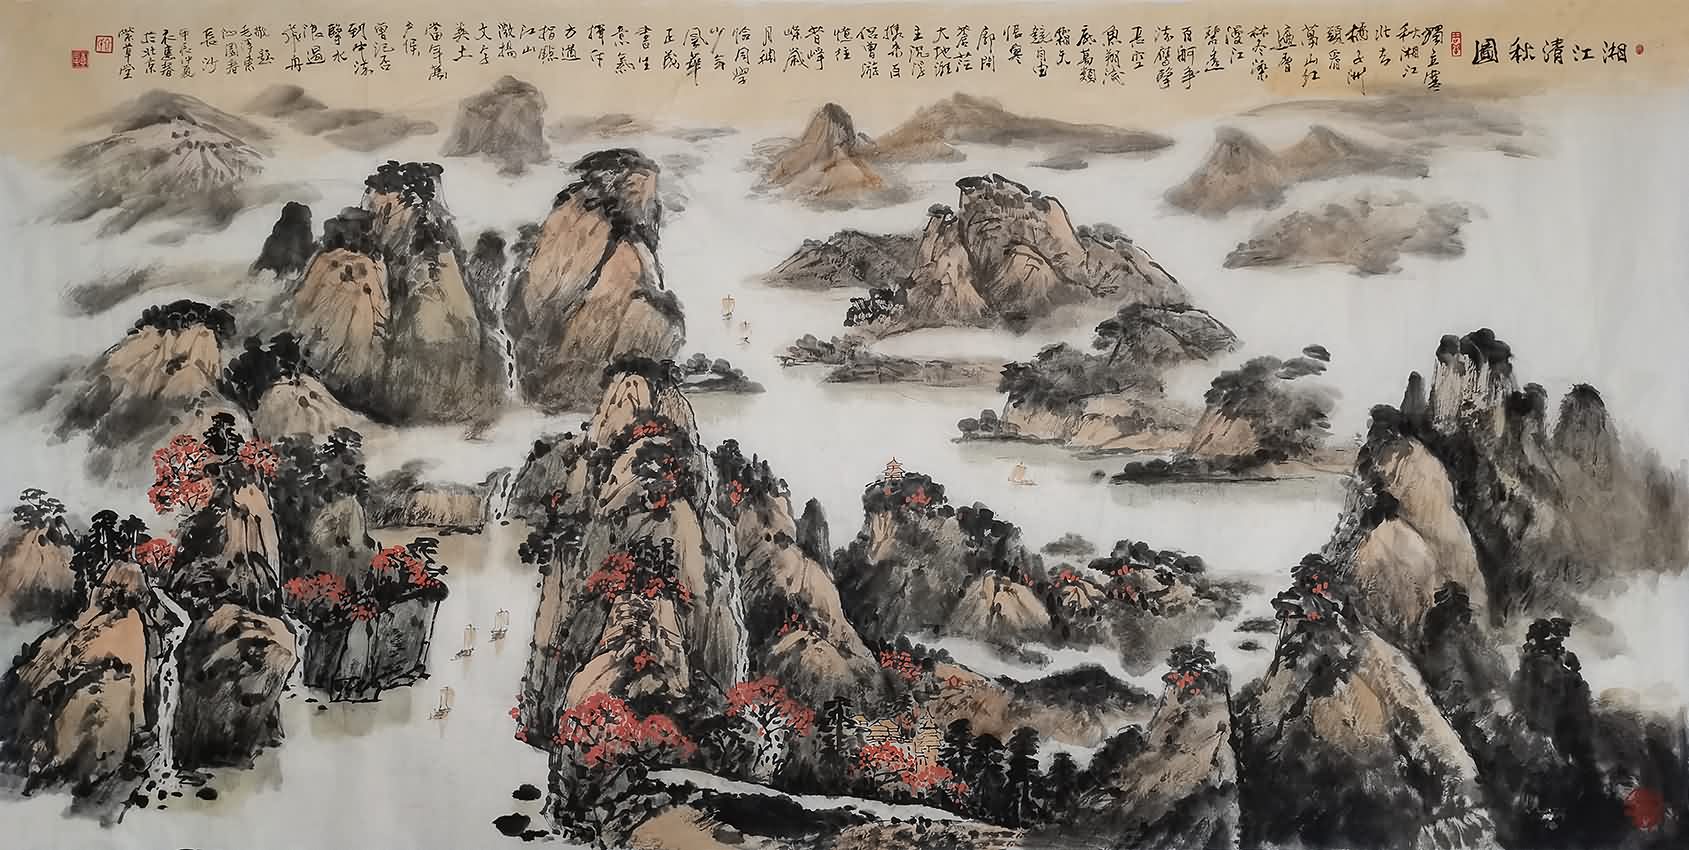 湘江清秋圖
獨立寒
秋湘江
北去
橘子洲
頭看
萬山紅
遍層
林尽染
漫江
碧透
百舸爭
流鷹擊
長空
魚翔淺
底萬類
霜天
競自由
悵寥
廓問
蒼茫
大地誰
主沉浮
攜來百
侶曾遊
憶往
昔崢
嶸歲
月稠
恰同學
少年
風華
正茂
書生
意氣
揮斥
方遒
指點
江山
激揚
文字
糞土
當年萬
户侯
曾記否
到中流
擊水
浪遏
飛舟
敬題
毛澤東
沁園春
長沙
甲辰仲夏
於北京
紫草堂